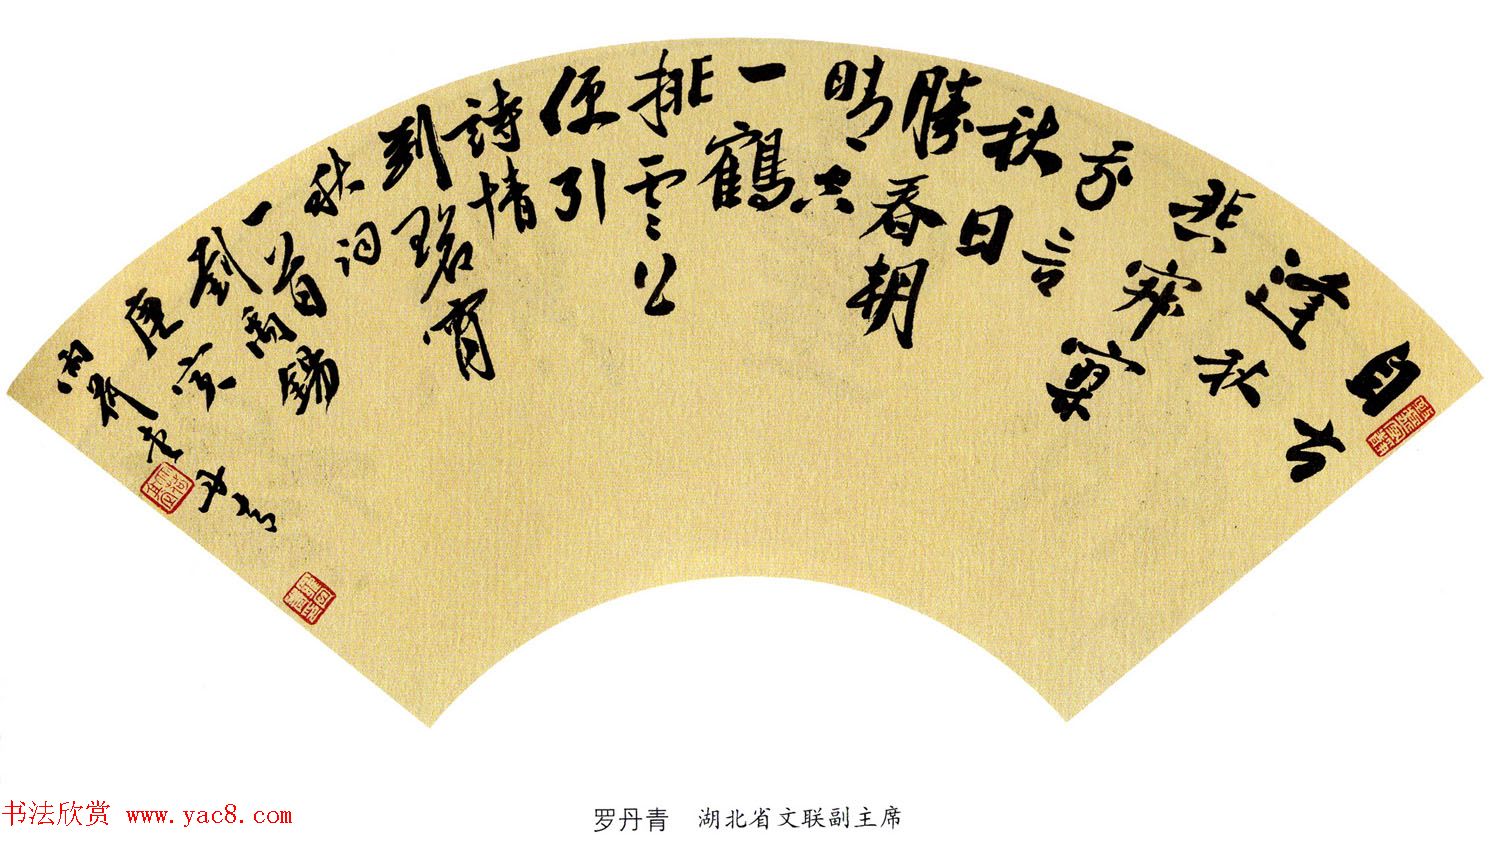 自古
逢秋
悲寂寥
我言
秋日
勝春朝
晴空
一鶴
排雲上
便引
詩情
到碧霄
秋詞
一首
劉禹錫
庚寅
丹青
罗丹青 湖北省文联副主席
书法欣赏 www.yac8.com